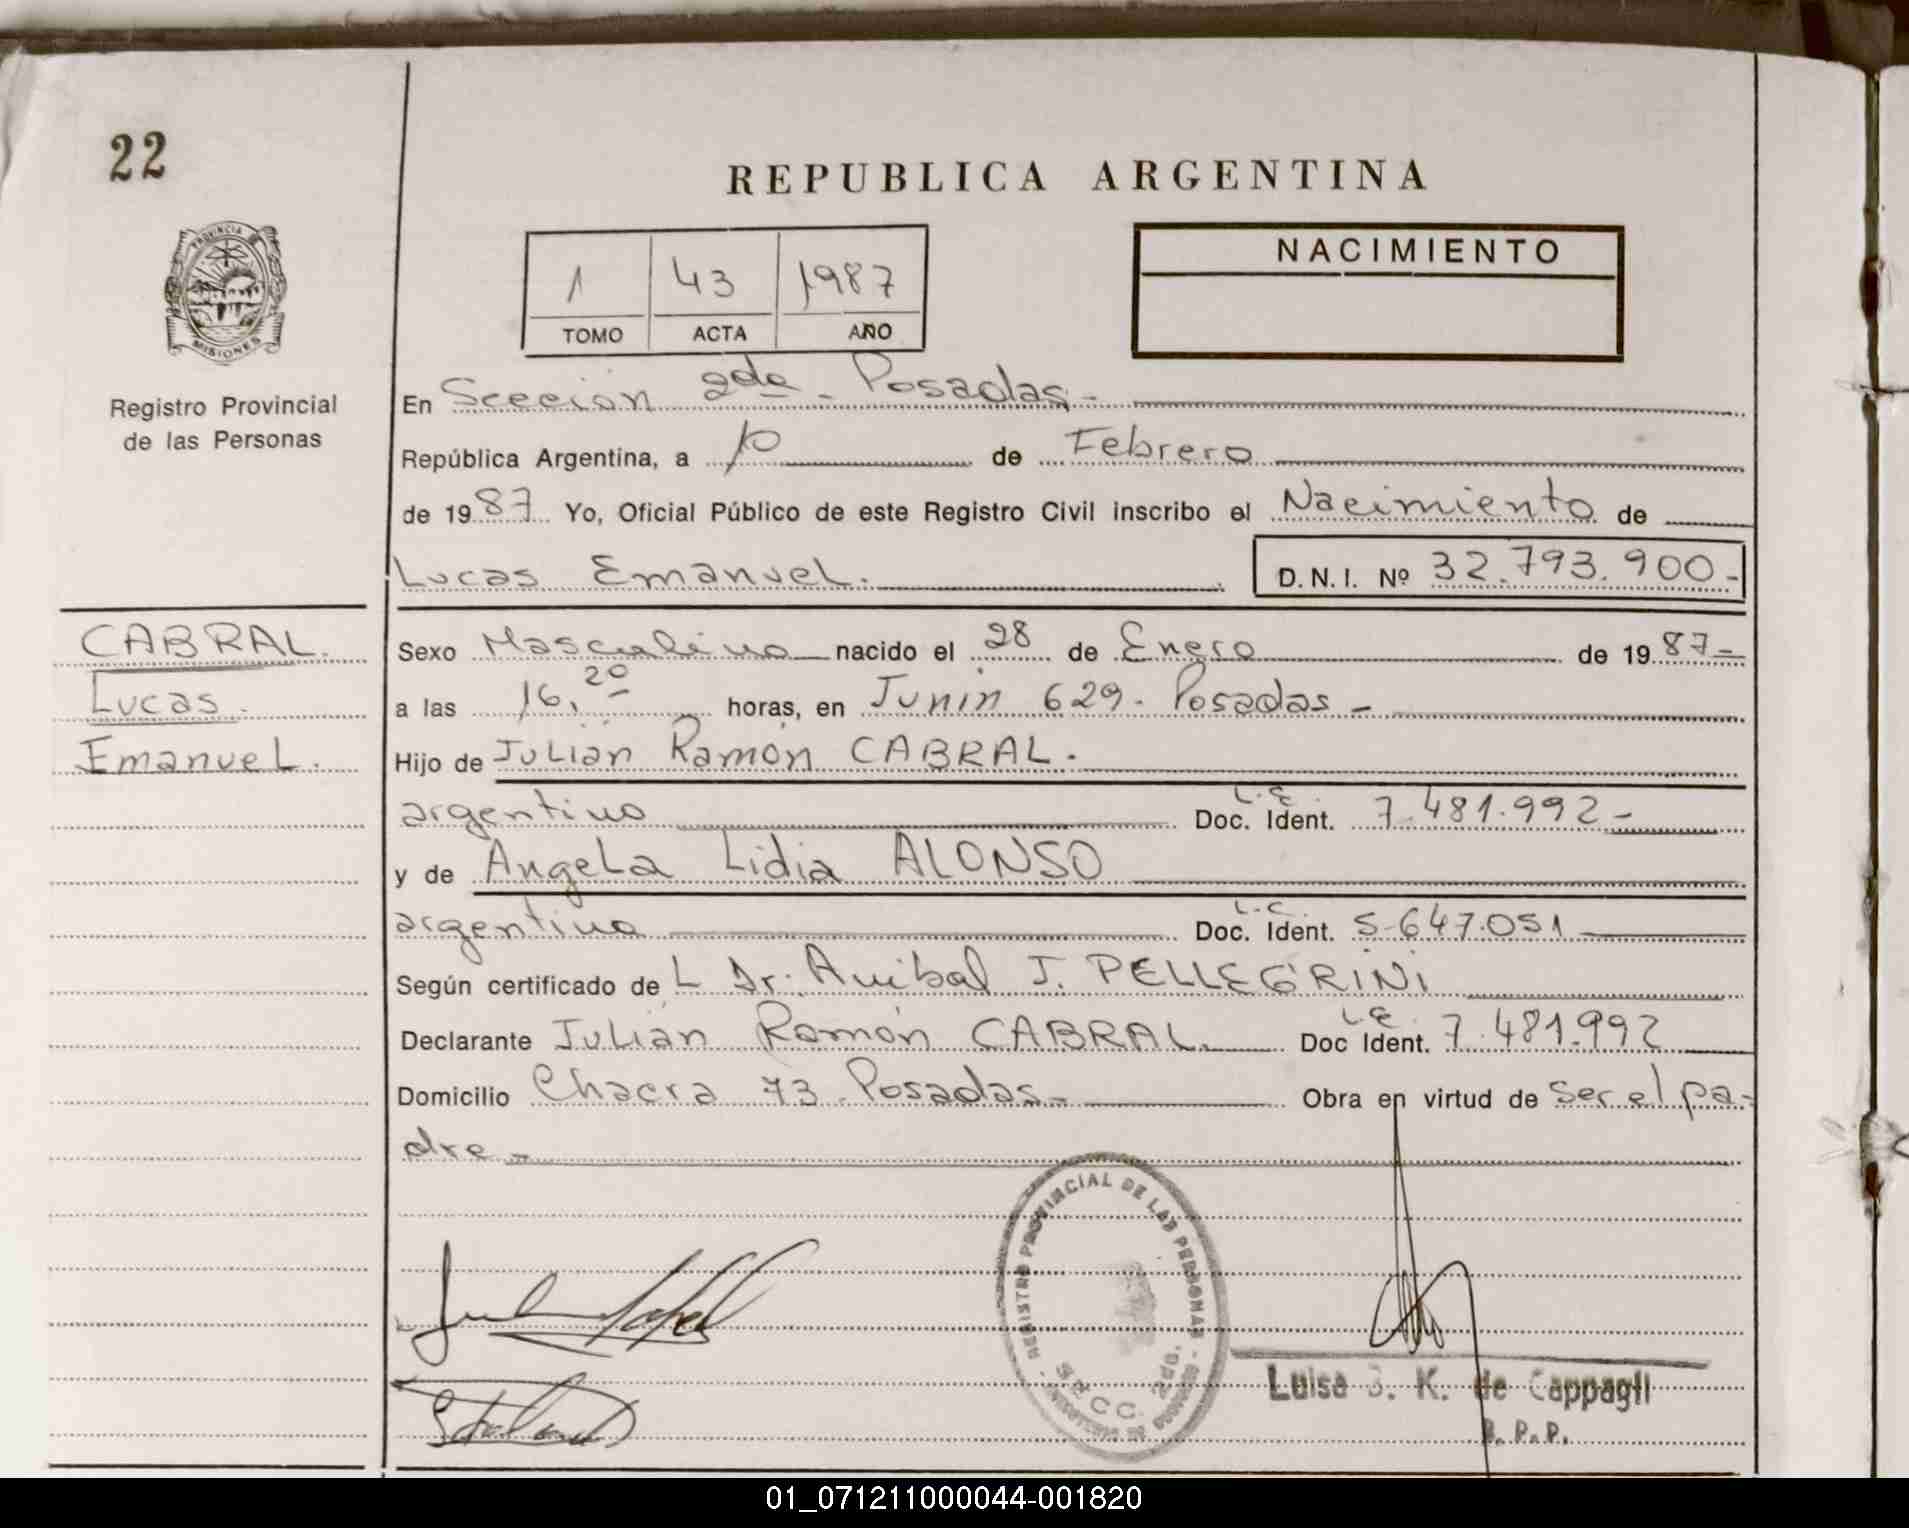 22
REPUBLICA ARGENTINA
PROVINCIA DE
MISIONES
1 43 1987
TOMO ACTA AÑO
NACIMIENTO
Registro Provincial
de las Personas
En Sección 2da - Posadas -
República Argentina, a 10 de Febrero
de 1987 Yo, Oficial Público de este Registro Civil inscribo el Nacimiento de
Lucas Emanuel. D.N.I. Nº 32.793.900-
CABRAL.
Lucas
Emanuel.
Sexo Masculino nacido el 28 de Enero de 1987-
a las 16,20 horas, en Junin 629 - Posadas -
Hijo de Julián Ramón CABRAL.
argentino L.E. Doc. Ident. 7.481.992-
y de Angela Lidia ALONSO
argentina L.C. Doc. Ident. 5.647.051
Según certificado de L Dr. Anibal J. PELLEGRINI
Declarante Julián Ramón CABRAL. L.E. Doc Ident. 7.481.992
Domicilio Chacra 73 - Posadas - Obra en virtud de ser el pa-
dre -
REGISTRO PROVINCIAL DE LAS PERSONAS
2da.
Luisa K. de Cappagli
01_071211000044-001820